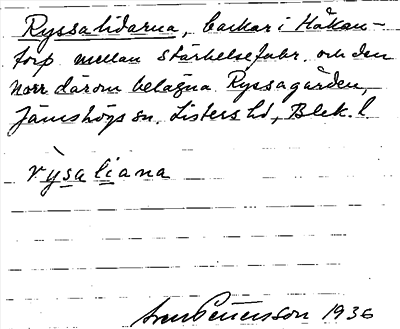 Ryssalidarna, backar i Håkan-
torp mellan stärkelsefabr. och den
norr därom belägna Ryssagården,
Jämshögs sn, Listers hd, Blek. l.
rỳsaliana
Sven Benson 1936